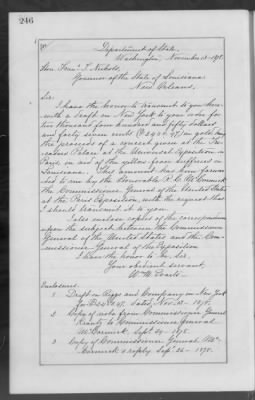 246
Department of State,
Washington, November 13. 1878.
Hon. Franc. T. Nicholls,
Governor of the State of Louisiana
New Orleans.
Sir:
I have the honor to transmit to you here-
with a draft on New York to your order for
two thousand four hundred and fifty dollars
and forty seven cents ($2450.47) in gold being
the proceeds of a concert given at the Tro-
cadero Palace at the Universal Exposition in
Paris, in aid of the yellow fever sufferers in
Louisiana. This amount has been forwar-
ded to me by the Honorable R. C. McCormick
the Commissioner General of the United States
at the Paris Exposition, with the request that
I should transmit it to you.
I also enclose copies of the correspondence
upon the subject between the Commissioner
General of the United States and the Com-
missioner General of the Exposition.
I have the honor to be Sir,
Your obedient servant
Wm M. Evarts.
Enclosures.
1 Draft on Riggs and Company on New York
for $2450.47, dated, Nov. 13 - 1878.
2 Copy of note from Commissioner General
Krantz to Commissioner General
McCormick, Sept. 24 - 1878.
3 Copy of Commissioner General Mc-
Cormick's reply Sept. 26 - 1878.